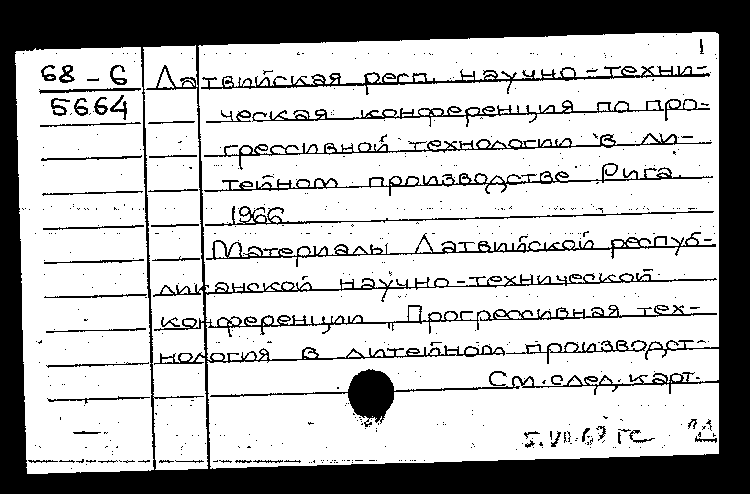 1
68-6 Латвийская респ. научно-техни-
5664 ческая конференция по про-
грессивной технологии в ли-
тейном производстве Рига.
1966
Материалы Латвийской респуб-
ликанской научно-технической
конференции „Прогрессивная тех-
нология в литейном производст-
См. след. карт.
5.VII.68 ГС